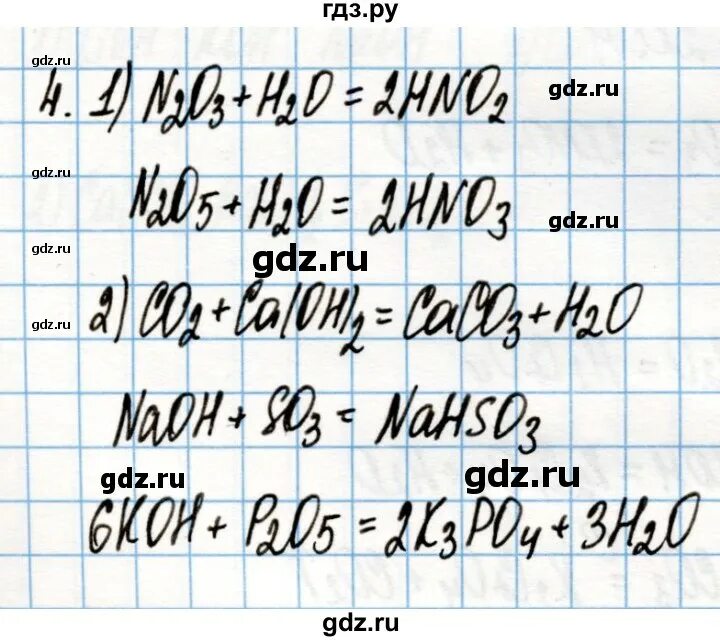 гдз.ру
gdz.ru
4. 1) N2O3 + H2O = 2HNO2
gdz.ru
gdz.ru
N2O5 + H2O = 2HNO3
gdz.ru
gdz.ru
gdz.ru
gdz.ru
2) CO2 + Ca(OH)2 = CaCO3 + H2O
NaOH + SO3 = NaHSO3
gdz.ru
gdz.ru
6KOH + P2O5 = 2K3PO4 + 3H2O
gdz.ru